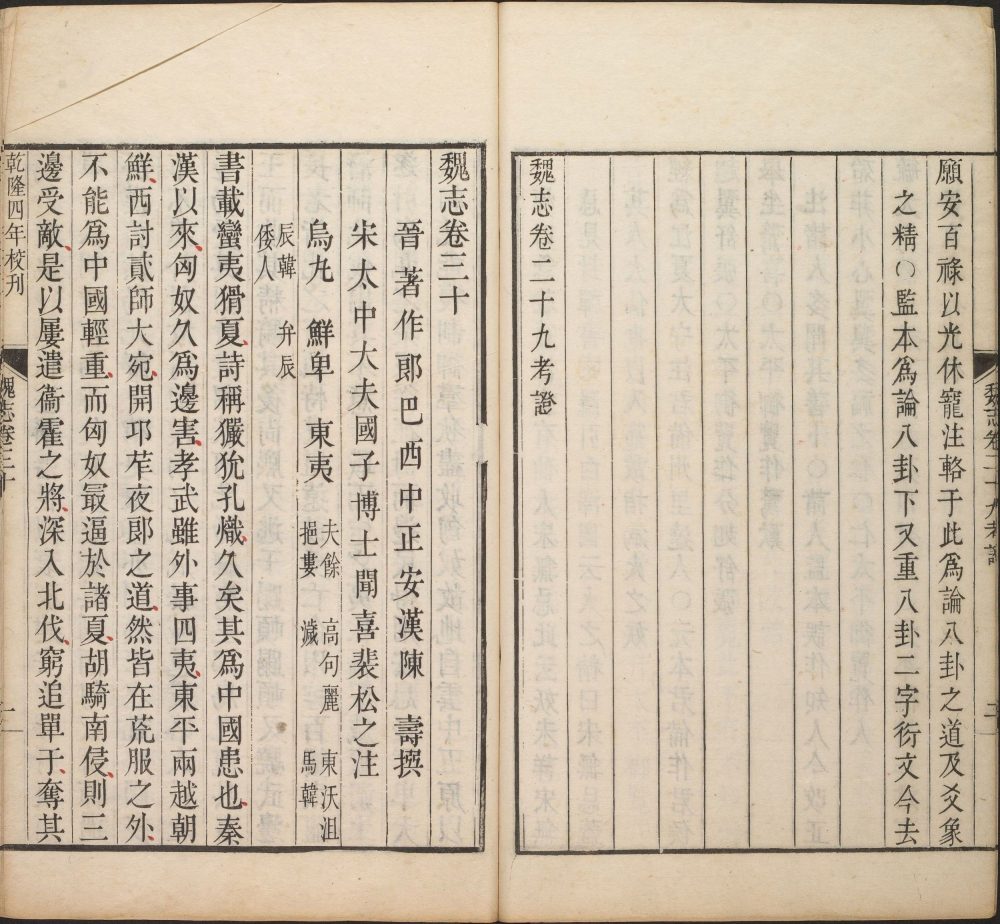 願安百祿以光休寵注輅于此爲論八卦之道及爻象
之精○監本爲論八卦下又重八卦二字衍文今去
魏志卷二十九考證
魏志卷二十九考證
二
魏志卷三十
晉著作郎巴西中正安漢陳壽撰
宋太中大夫國子博士聞喜裴松之注
烏丸 鮮卑 東夷 夫餘 高句麗 東沃沮
挹婁 濊 馬韓
辰韓 弁辰
倭人
書載蠻夷猾夏詩稱玁狁孔熾久矣其爲中國患也秦
漢以來匈奴久爲邊害孝武雖外事四夷東平兩越朝
鮮西討貳師大宛開邛苲夜郎之道然皆在荒服之外
不能爲中國輕重而匈奴最逼於諸夏胡騎南侵則三
邊受敵是以屢遣衞霍之將深入北伐窮追單于奪其
乾隆四年校刊
魏志卷三十
一